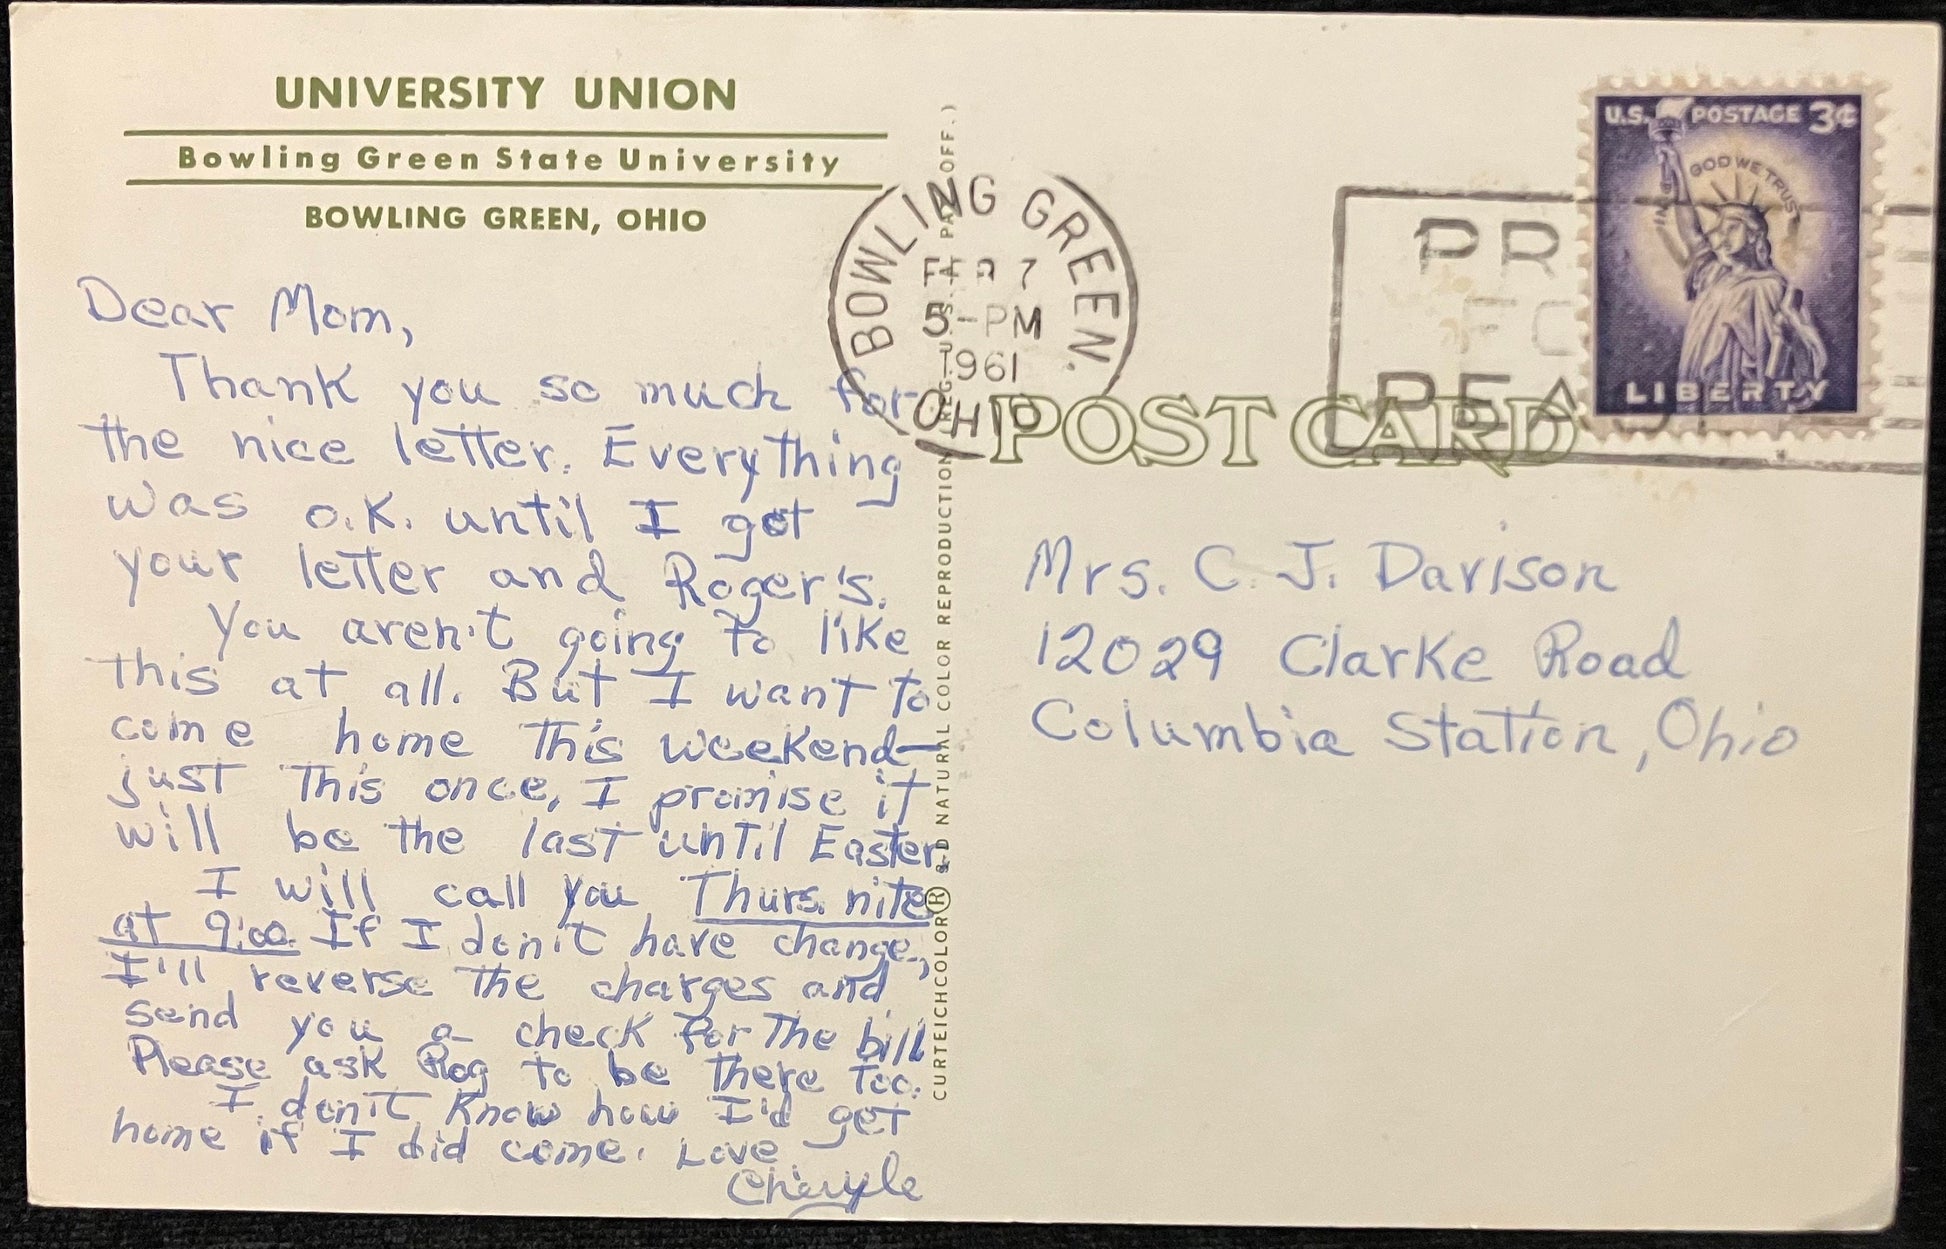 UNIVERSITY UNION
Bowling Green State University
BOWLING GREEN, OHIO
Dear Mom,
Thank you so much for
the nice letter. Everything
was o.K. until I got
your letter and Roger's.
You aren't going to like
this at all. But I want to
come home this weekend—
just this once, I promise it
will be the last until Easter.
I will call you Thurs. nite
at 9:00. If I don't have change,
I'll reverse the charges and
send you a check for the bill
Please ask Rog to be there too.
I don't know how I'd get
home if I did come. Love
Cheryle
CURTEICHCOLOR® 3-D NATURAL COLOR REPRODUCTION (REG. U.S.A. PAT. OFF.)
BOWLING GREEN.
7
5-PM
1961
OHIO
PR
POST CARD
U.S. POSTAGE 3¢
IN GOD WE TRUST
LIBERTY
Mrs. C. J. Davison
12029 Clarke Road
Columbia Station, Ohio